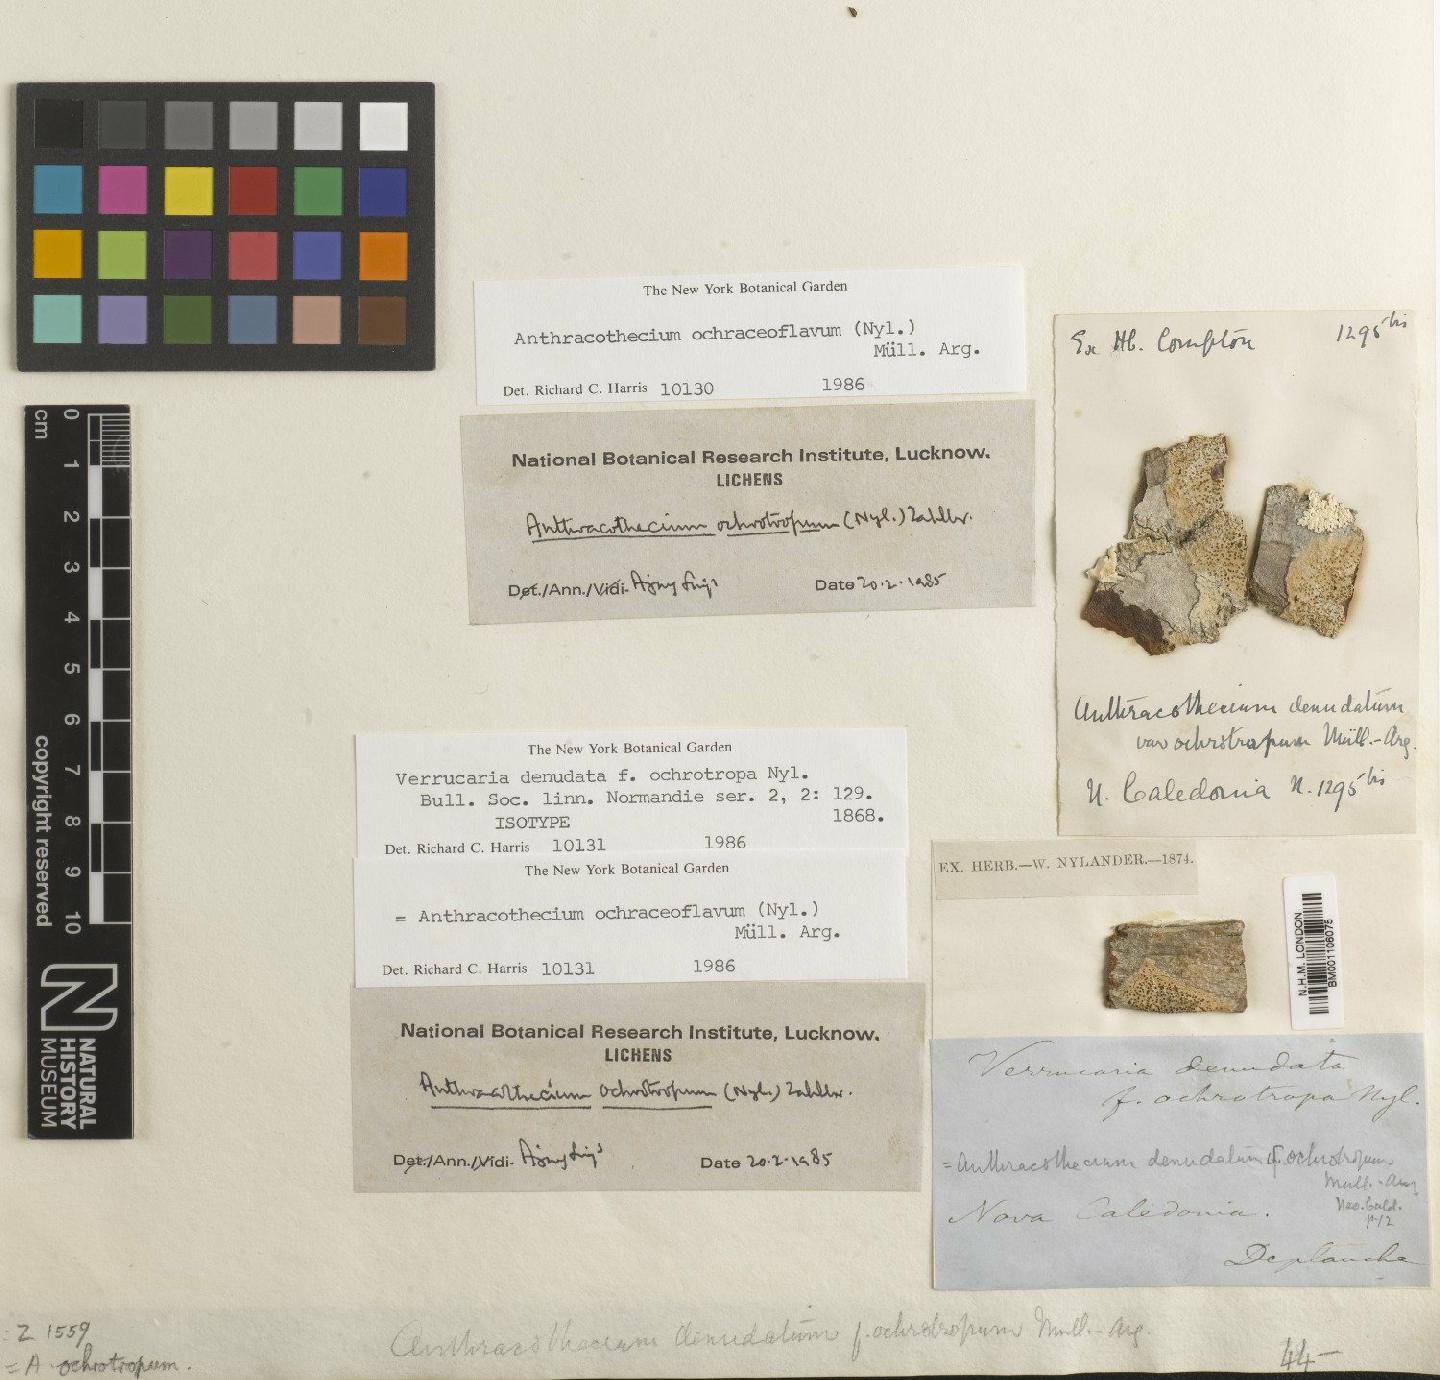 The New York Botanical Garden
Anthracothecium ochraceoflavum (Nyl.)
Müll. Arg.
Det. Richard C. Harris 10130 1986
National Botanical Research Institute, Lucknow.
LICHENS
Anthracothecium ochrotropum (Nyl.) Zahlbr.
Det./Ann./Vidi. Ajay Singh
Date 20.2.1985
Ex Hb. Compton 1295 bis
Anthracothecium denudatum
var ochrotropum Müll.-Arg.
N. Caledonia N. 1295 bis
The New York Botanical Garden
Verrucaria denudata f. ochrotropa Nyl.
Bull. Soc. linn. Normandie ser. 2, 2: 129.
1868.
ISOTYPE
Det. Richard C. Harris 10131 1986
The New York Botanical Garden
= Anthracothecium ochraceoflavum (Nyl.)
Müll. Arg.
Det. Richard C. Harris 10131 1986
National Botanical Research Institute, Lucknow.
LICHENS
Anthracothecium ochrotropum (Nyl.) Zahlbr.
Det./Ann./Vidi. Ajay Singh
Date 20.2.1985
EX. HERB.—W. NYLANDER.—1874.
N.H.M. LONDON
BM001106075
Verrucaria denudata
f. ochrotropa Nyl.
= Anthracothecium denudatum f. ochrotropum
Müll.-Arg
Neo. Caled.
p.12
Nova Caledonia.
Deplanche
cm
0
1
2
3
4
5
6
7
8
9
10
copyright reserved
NATURAL
HISTORY
MUSEUM
Z 1559
= A. ochrotropum.
Anthracothecium denudatum f. ochrotropum Müll.-Arg.
44—